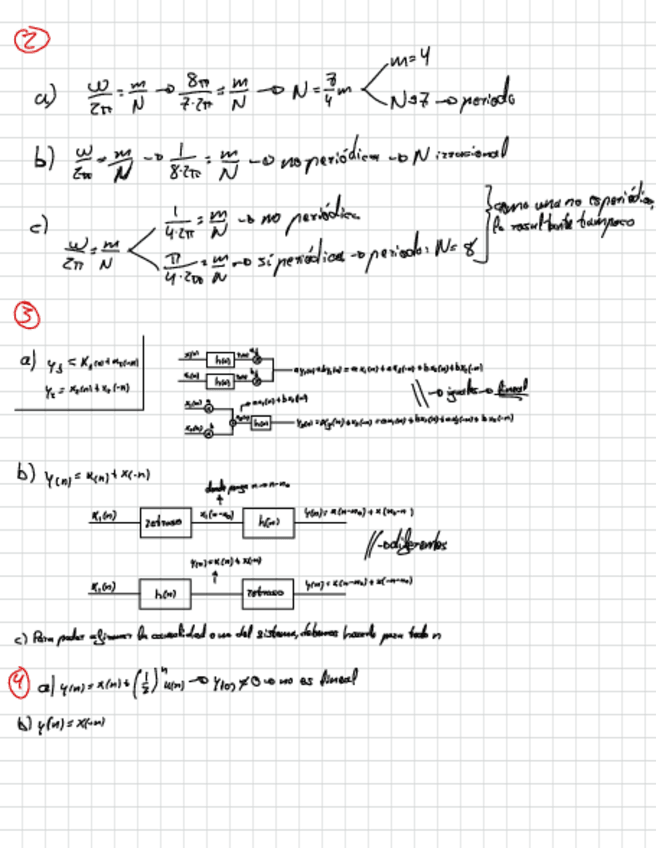 2
a) ω/2π = m/N → 8π/7·2π = m/N → N = 7/4 m
m = 4
N = 7 → periodo
b) ω/2π = m/N → 1/8·2π = m/N → no periódica → N irracional
c) ω/2π = m/N
1/4·2π = m/N → no periódica
π/4·2π = m/N → sí periódica → periodo: N = 8
como una no es periódica, la resultante tampoco
3
a)
h(n)
h(n)
h(n)
// → iguales → lineal
b) y(n) = x(n) + x(-n)
donde ponga n → n-n₀
x₁(n) retraso x₁(n-n₀) h(n) y(n) = x(n-n₀) + x(n₀-n)
// → diferentes
y(n) = x(n) + x(-n)
x₁(n) h(n) retraso y(n) = x(n-n₀) + x(-n-n₀)
c) Para poder afirmar la causalidad o no del sistema, debemos hacerlo para todo n
4
a) y(n) = x(n) + (1/2)ⁿ u(n) → y(0) ≠ 0 → no es lineal
b) y(n) = x(-n)